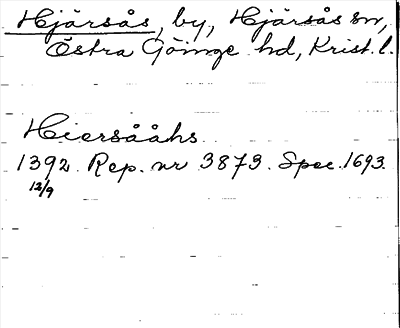 Hjärsås, by, Hjärsås sn,
Östra Göinge hd, Krist. l.
Hiersååhs
1392 Rep. nr 3873. Spec. 1693.
12/9